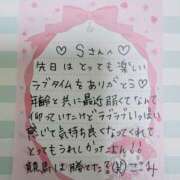 ♡Sさんへ♡
先日はとっても楽しい
ラブタイムをありがとう♡
年齢と共に最近弱くてなんて
仰っていたけどラブラブいっぱい
感じて気持ち良くなってくれて
とってもうれしかったよん!!
競馬は勝てた?(笑)